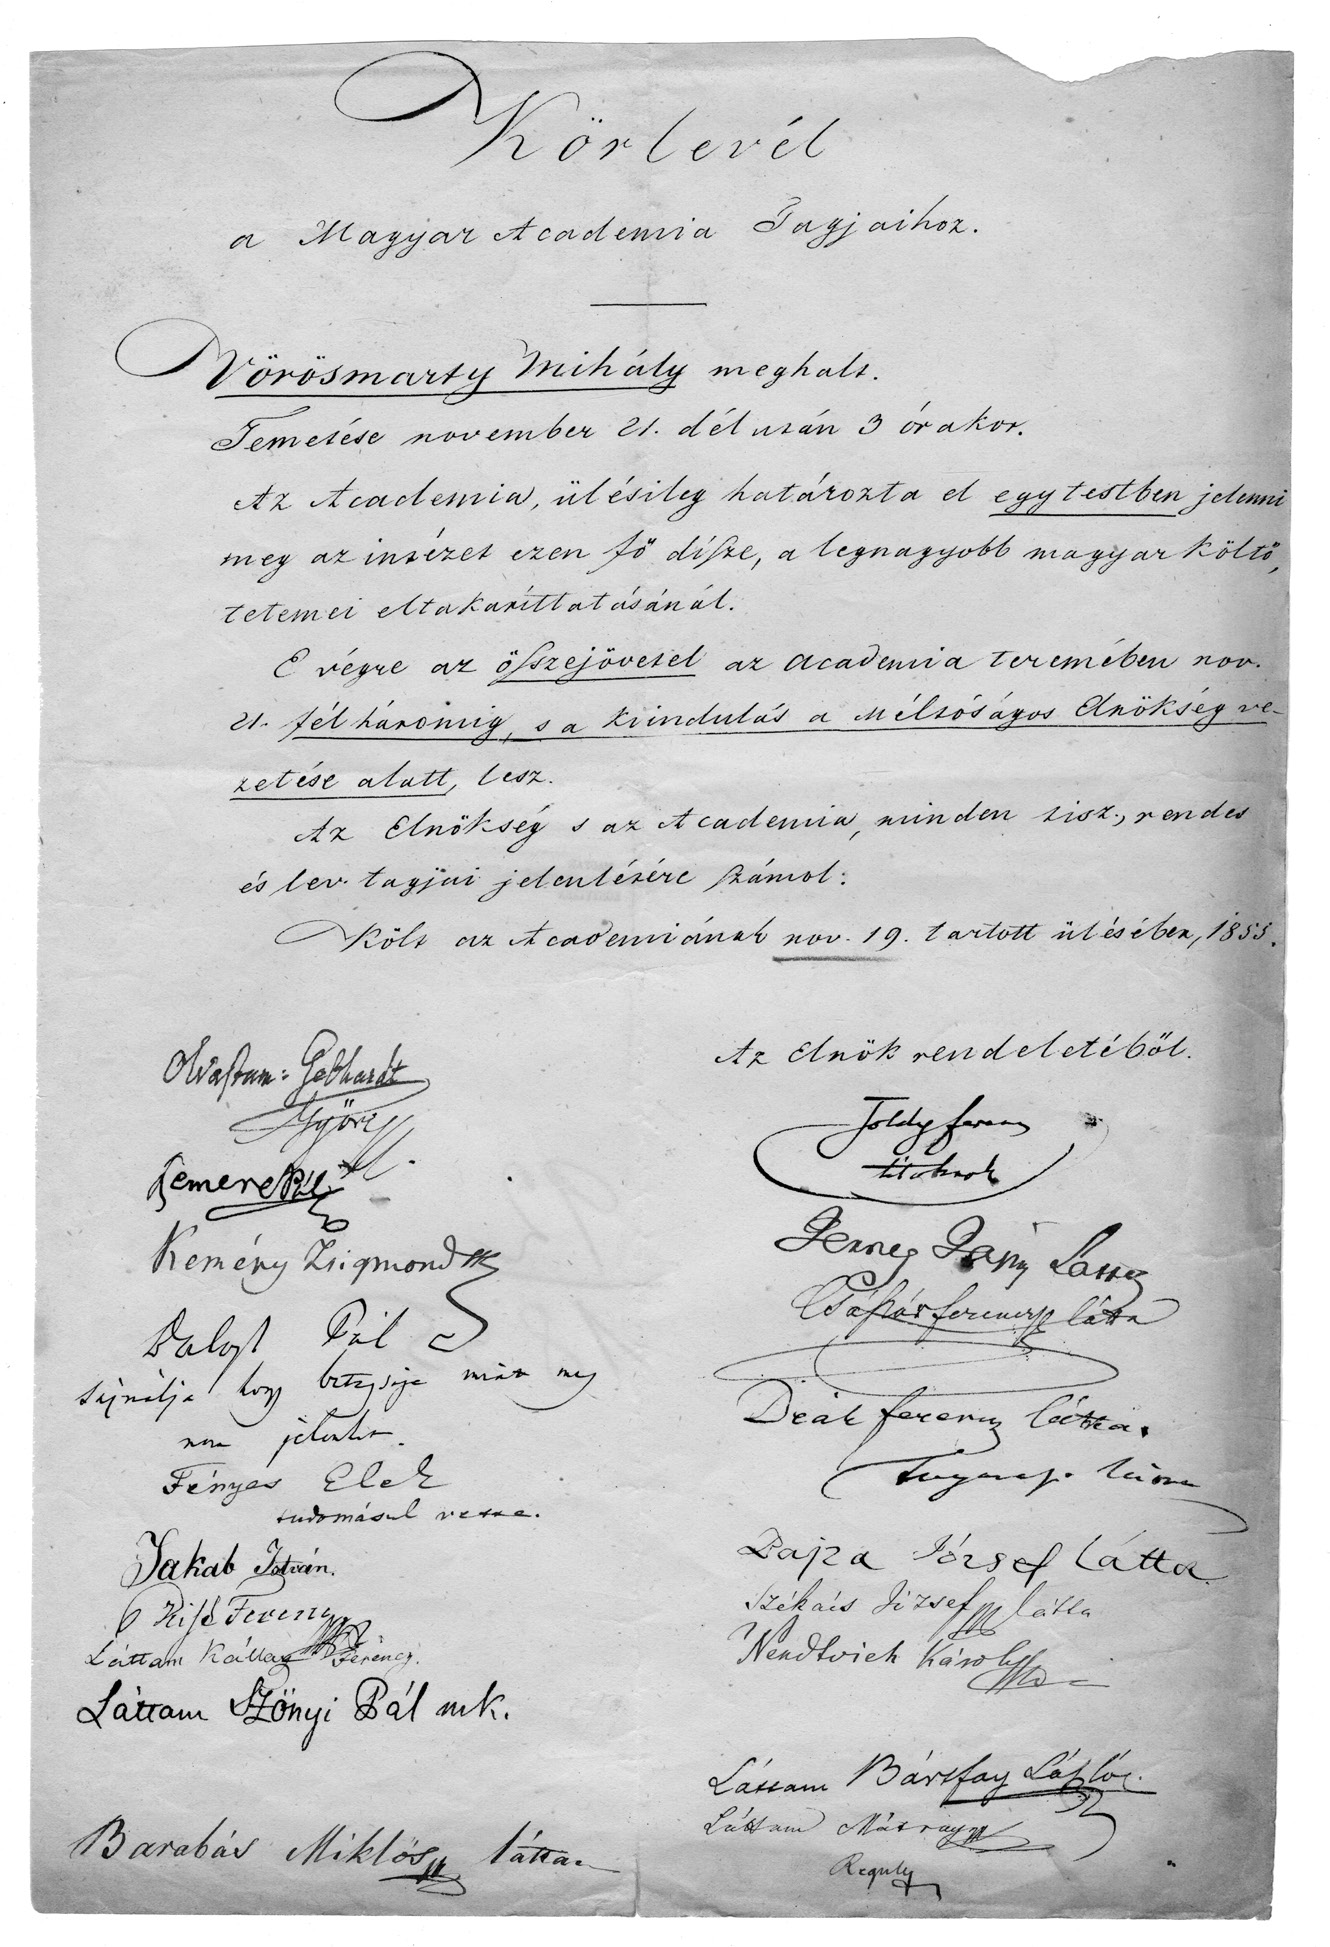 Körlevél
a Magyar Academia Tagjaihoz.
Vörösmarty Mihály meghalt.
Temetése november 21. dél után 3 órakor.
Az Academia, ülésileg határozta el egy testben jelenni
meg az intézet ezen fő díſze, a legnagyobb magyar költő,
tetemei eltakaríttatásánál.
E végre az öſszejövetel az academia teremében nov.
21. fél háromig, s a kiindulás a Méltóságos Elnökség ve-
zetése alatt, lesz.
Az Elnökség s az Academia, minden tisz., rendes
és lev. tagjai jelenlétére ſzámol:
Költ az Academiának nov. 19. tartott ülésében, 1855.
Az Elnök rendeletéből.
Toldy ferenc
titoknok
Jerney János Látta
Császár ferencz látta
Deák ferencz látta.
látta
Bajza József látta
Székács József látta
Nendtvich Károly
Láttam Bártfay László.
Láttam Mátray
Reguly
Olvastam: Gebhardt
György
Kemény Zsigmond
Balogh Pál
sajnálja hogy betegsége miatt meg
nem jelenhet.
Fényes Elek
tudomásul vette.
Jakab István.
Kiſs Ferenc
Láttam Kállay Ferencz.
Láttam Szőnyi Pál mk.
Barabás Miklós látta